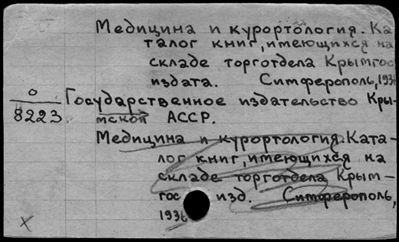 Медицина и курортология. Ка-
талог книг, имеющихся на
складе торготдела Крымгос-
издата. Симферополь, 1936
0
8223
Государственное издательство Кры-
мской АССР.
Медицина и курортология. Ката-
лог книг, имеющихся на
складе торготдела Крым-
гос изд. Симферополь,
1936
х